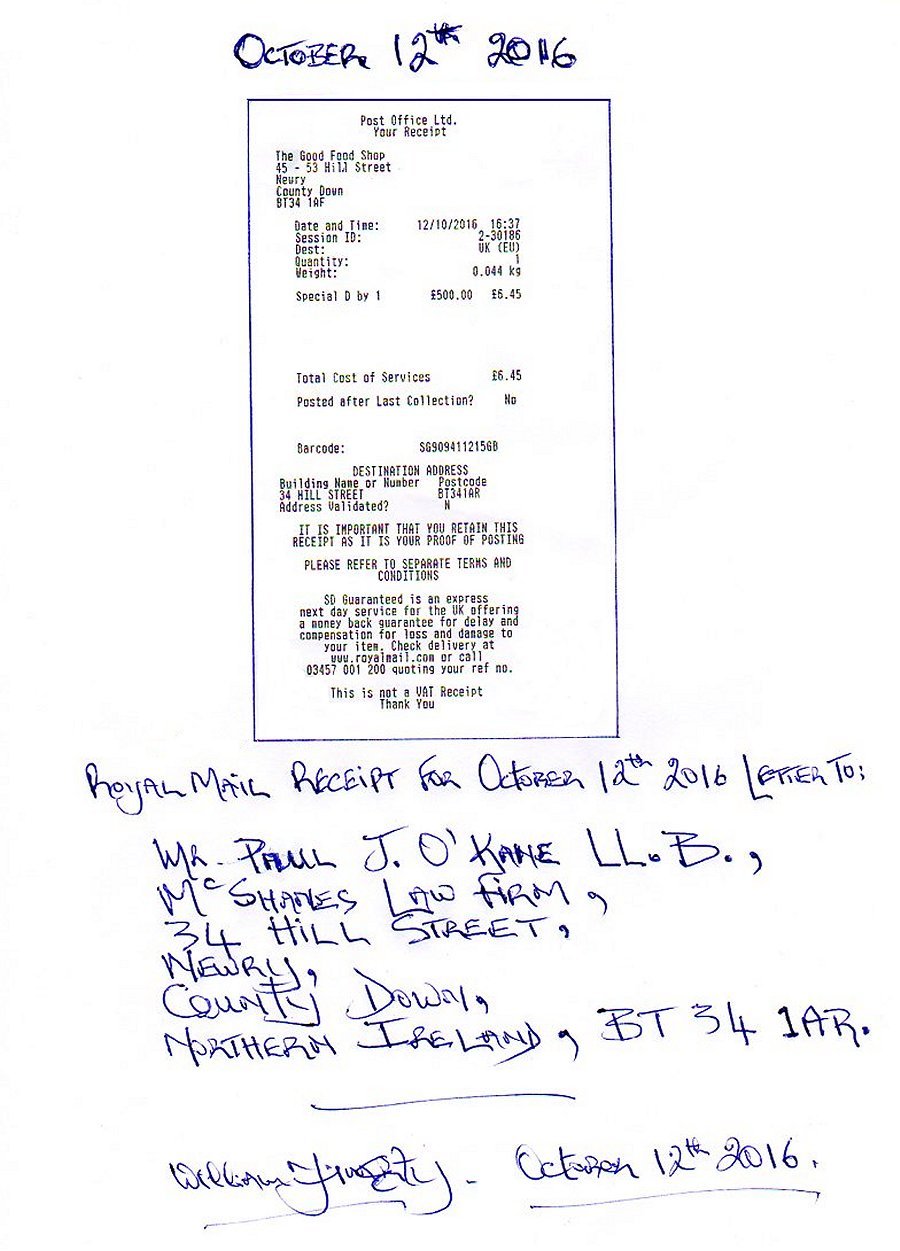 OCTOBER 12th 2016
Post Office Ltd.
Your Receipt
The Good Food Shop
45 - 53 Hill Street
Newry
County Down
BT34 1AF
Date and Time: 12/10/2016 16:37
Session ID: 2-30186
Dest: UK (EU)
Quantity: 1
Weight: 0.044 kg
Special D by 1 £500.00 £6.45
Total Cost of Services £6.45
Posted after Last Collection? No
Barcode: SG909411215GB
DESTINATION ADDRESS
Building Name or Number Postcode
34 HILL STREET BT341AR
Address Validated? N
IT IS IMPORTANT THAT YOU RETAIN THIS
RECEIPT AS IT IS YOUR PROOF OF POSTING
PLEASE REFER TO SEPARATE TERMS AND
CONDITIONS
SD Guaranteed is an express
next day service for the UK offering
a money back guarantee for delay and
compensation for loss and damage to
your item. Check delivery at
www.royalmail.com or call
03457 001 200 quoting your ref no.
This is not a VAT Receipt
Thank You
ROYAL MAIL RECEIPT FOR OCTOBER 12th 2016 LETTER TO:
Mr. PAUL J. O'KANE LL.B.,
McSHANES LAW FIRM,
34 HILL STREET,
NEWRY,
COUNTY DOWN,
NORTHERN IRELAND, BT34 1AR.
William Finnerty - October 12th 2016.